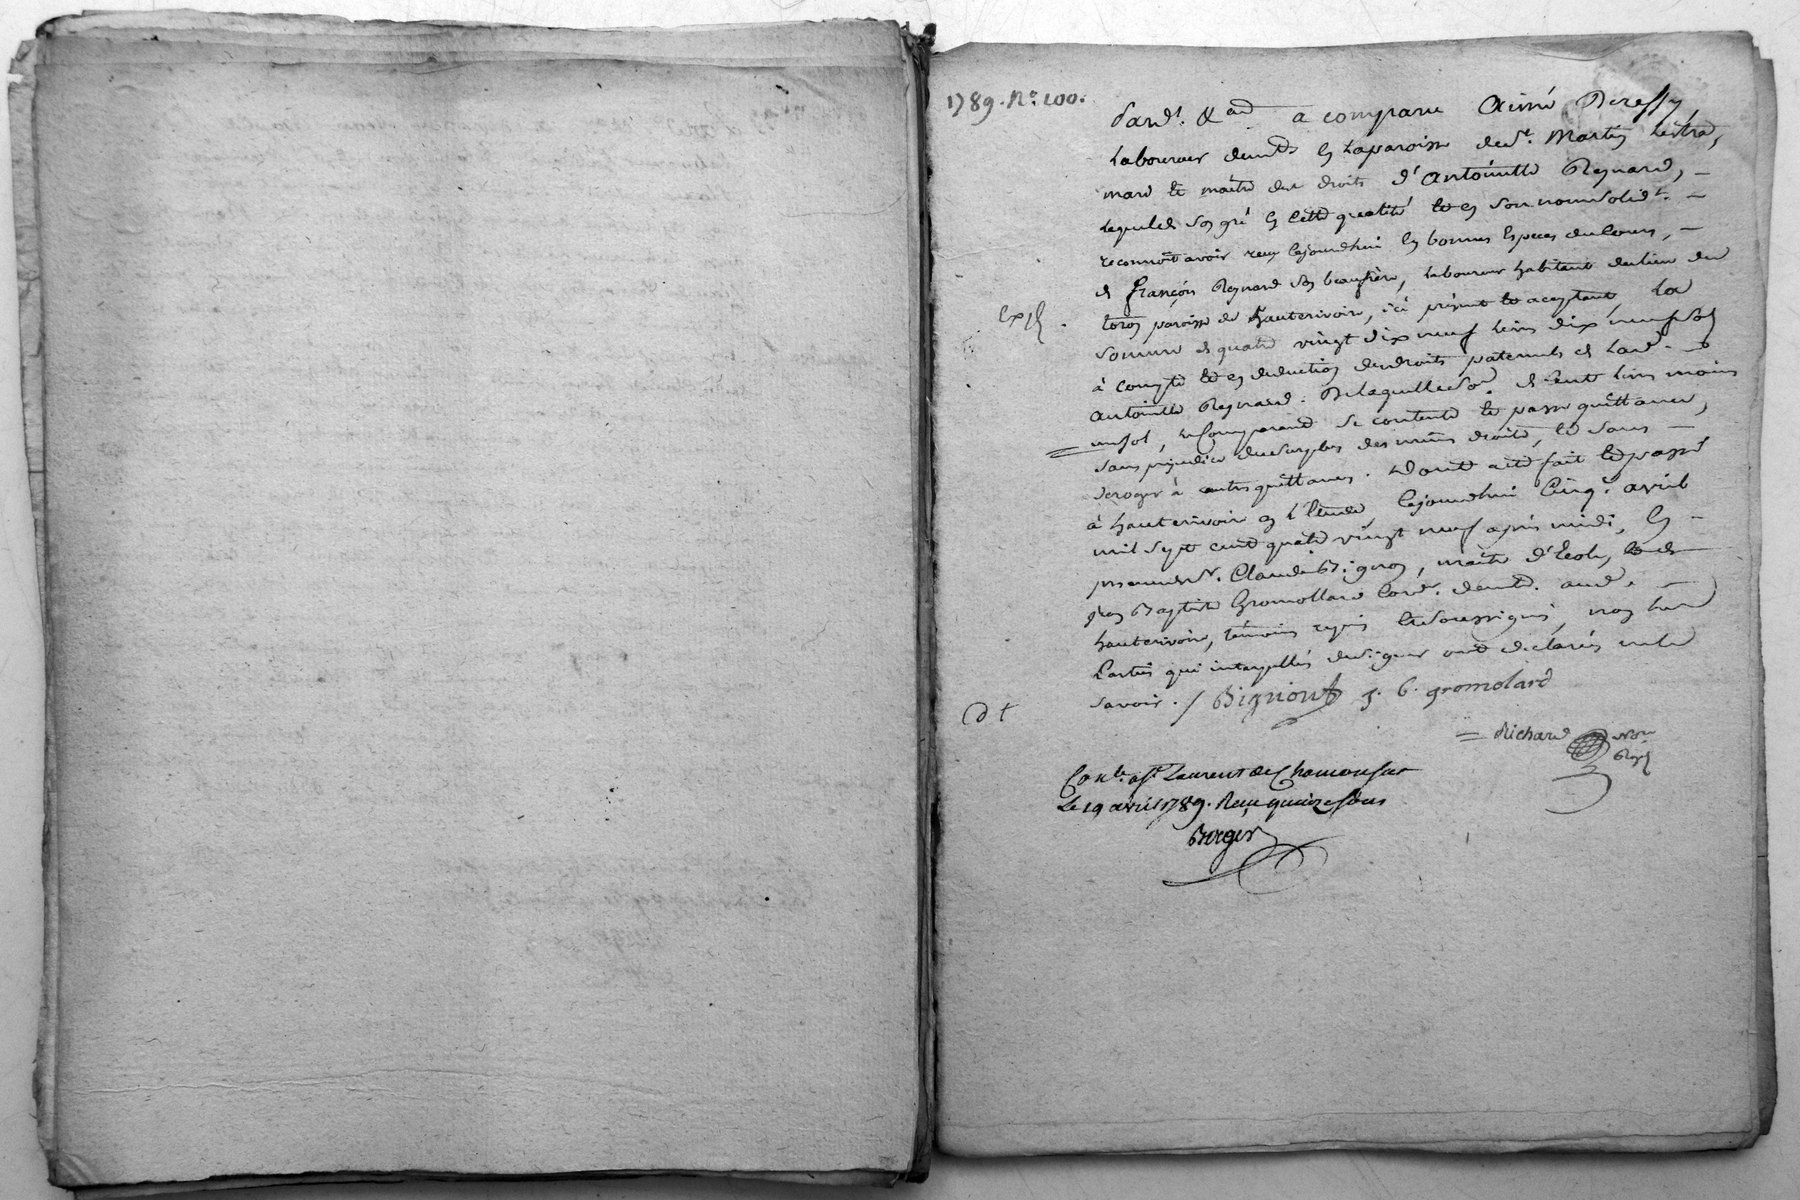 1789. N.° 100.
Pard.t &a a comparu Aimé Deressy,
Laboureur demt. en la paroisse de St. Martin Lestra,
mari et maitre des droits d'Antoinette Reynard,
Lequel de son gré en cette qualité et en son nom solidt.
reconnoit avoir recu cejourdhui en bonnes Especes du Cours,
de François Reynard son beaufrère, Laboureur habitant du lieu du
paroisse de hauterivoire, ici présent et aceptant, La
somme de quatre vingt dix neuf livres dix neuf sols
à compte et en deduction des droits paternels de lad.
Antoinette Reynard. De laquelle so.e de cent livres moins
un sol, le Comparant se contente et passe quittance,
sans prejudice du surplus des mêmes droits, et sans
deroger à autres quittances. Dont acte fait et passé
à hauterivoire en L'Etude, cejourdhui Cinq.e avril
mil sept cent quatre vingt neuf après midi, En
presence de Sr. Claude Bignon, maitre d'Ecole, et de
Jean Baptiste Gromollard Cord.r demt. aud.
hauterivoire, témoins requis et soussignés, non les
Parties qui interpellées de signer ont declarées ne le
savoir. / Bignon J. B. gromolard
Richard No.re
Roy.l
Conle. a St Laurent de Chamousset
Le 19 avril 1789. Recu quinze sous
Berger